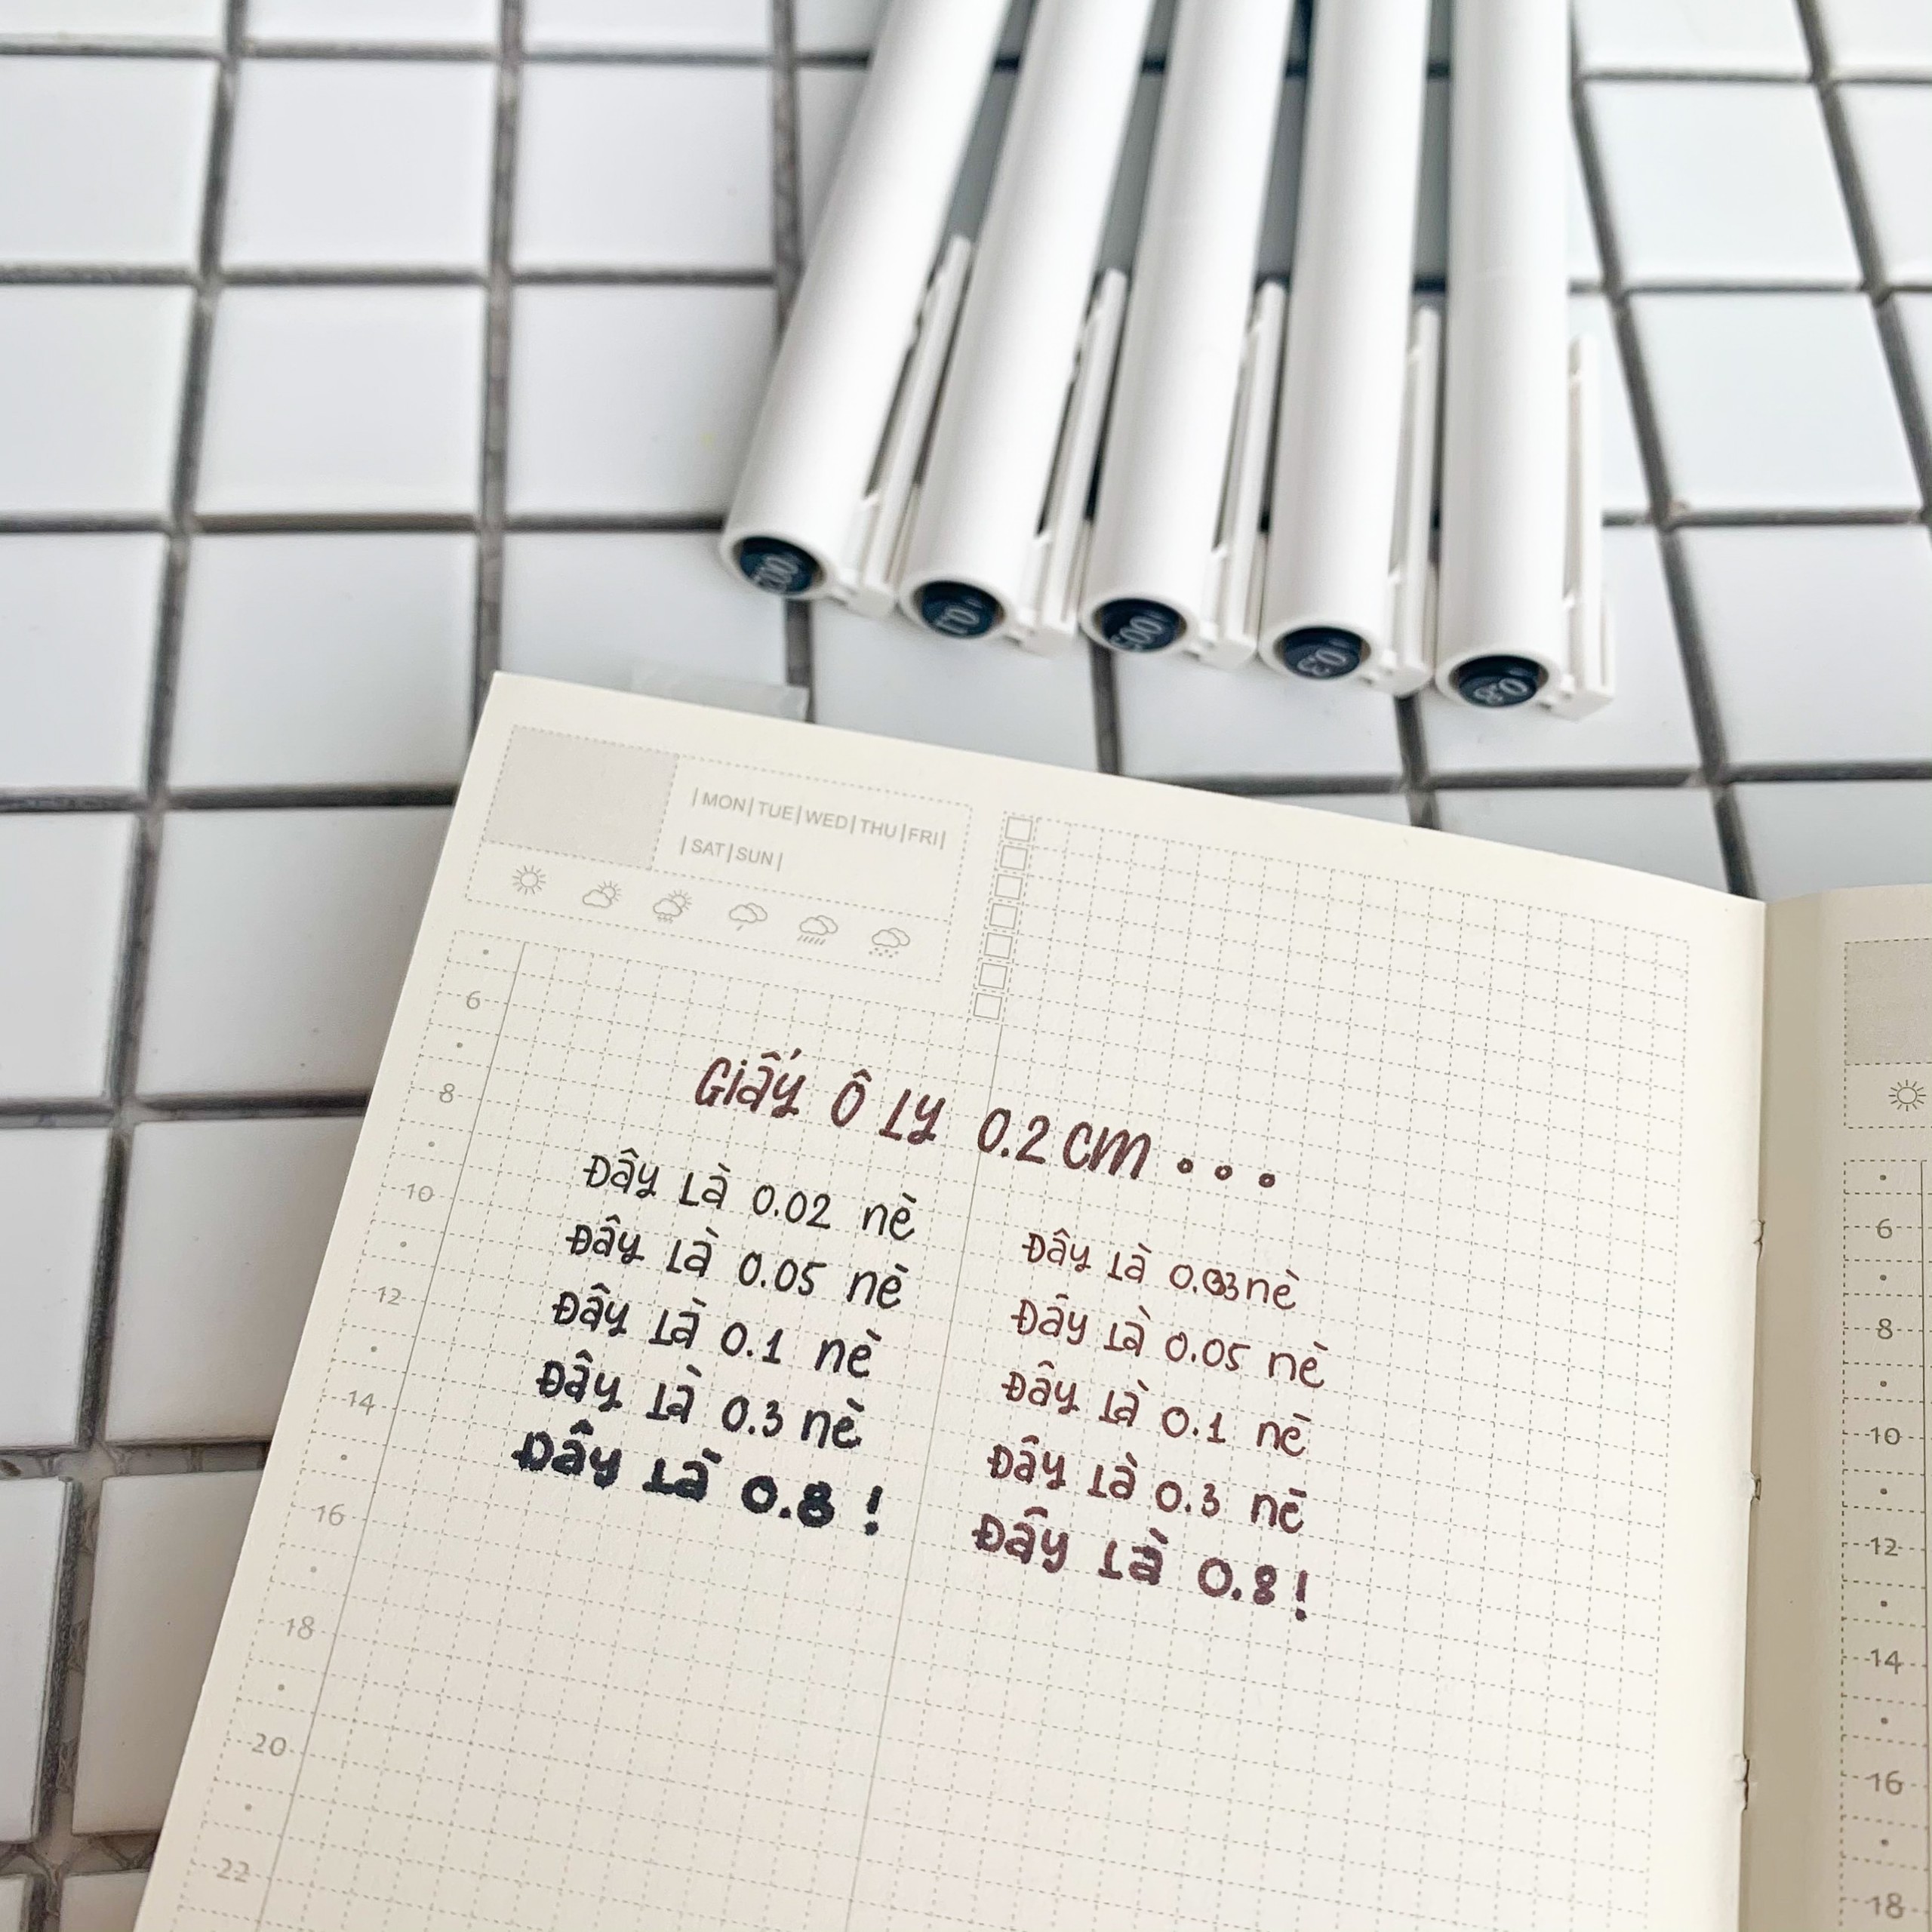 0.1
0.3
0.8
|MON|TUE|WED|THU|FRI|
|SAT|SUN|
6
8
10
12
14
16
18
20
22
Giấy Ô Ly 0.2 cm...
Đây là 0.02 nè
Đây là 0.05 nè
Đây là 0.1 nè
Đây là 0.3 nè
Đây là 0.8 !
Đây là 0.03 nè
Đây là 0.05 nè
Đây là 0.1 nè
Đây là 0.3 nè
Đây là 0.8 !
6
8
10
12
14
16
18